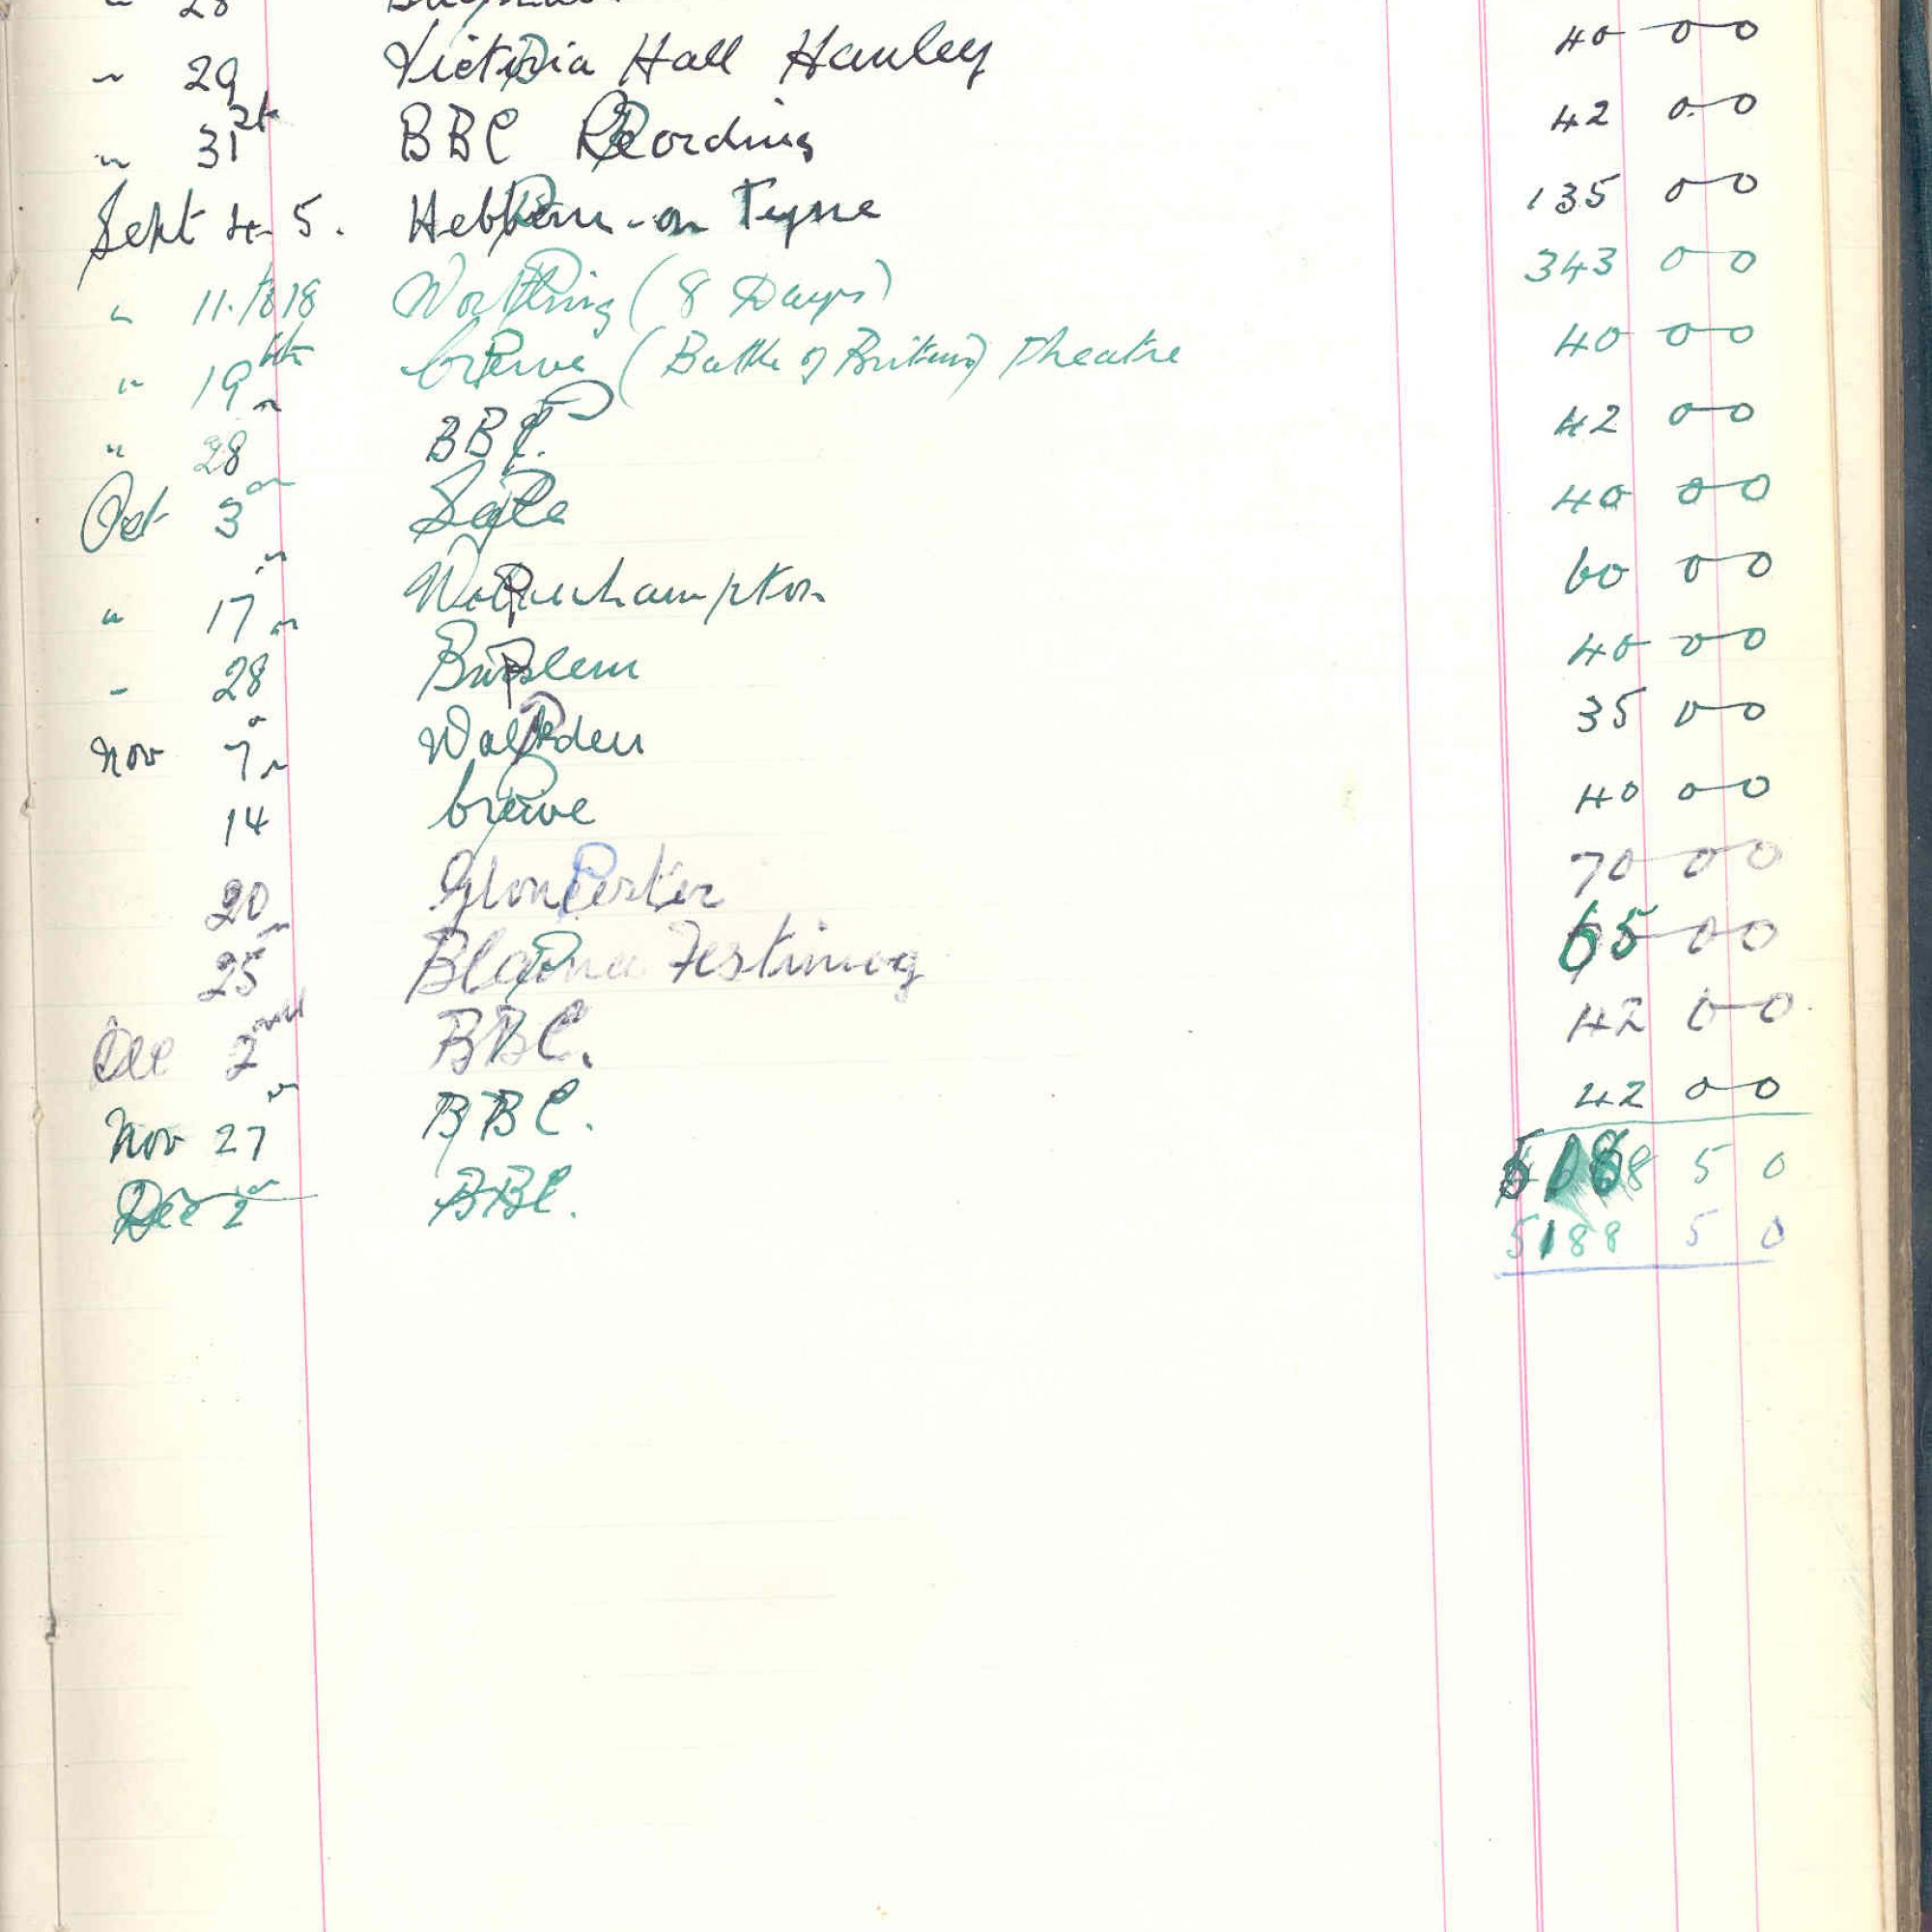 " 28
" 29 Victoria Hall Hanley 40 0 0
" 31st BBC Recording 42 0 0
Sept 4 5. Hebburn-on Tyne 135 0 0
" 11. to 18 Worthing (8 Days) 343 0 0
" 19th Crewe (Battle of Britain) Theatre 40 0 0
" 28 BBC. 42 0 0
Oct 3 Sale 40 0 0
" 17 Wolverhampton 60 0 0
" 28 Burslem 40 0 0
Nov 7 Walkden 35 0 0
14 Crewe 40 0 0
20 Gloucester 70 0 0
25 Blaenau Festiniog 65 0 0
Dec 2nd BBC. 42 0 0
Nov 27 BBC. 42 0 0
Dec 2 BBC. 5188 5 0
5188 5 0